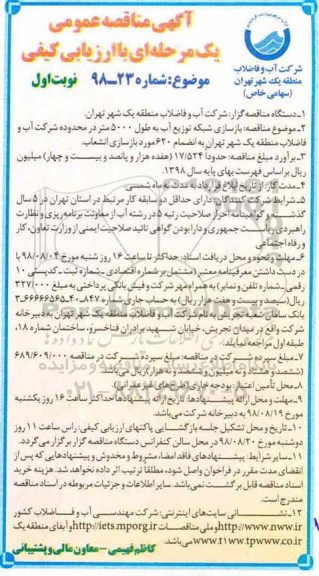 آگهی مناقصه عمومی
یک مرحله‌ای با ارزیابی کیفی
موضوع: شماره ۲۳-۹۸
نوبت اول
شرکت آب و فاضلاب
منطقه یک شهر تهران
(سهامی خاص)
۱- دستگاه مناقصه گزار: شرکت آب و فاضلاب منطقه یک شهر تهران.
۲- موضوع مناقصه: بازسازی شبکه توزیع آب به طول ۵۰۰۰ متر در محدوده شرکت آب و
فاضلاب منطقه یک شهر تهران به انضمام ۶۲۰ مورد بازسازی انشعاب.
۳- برآورد مبلغ مناقصه: حدودا ۱۷/۵۲۴ (هفده هزار و پانصد و بیست و چهار) میلیون
ریال براساس فهرست بهای پایه سال ۱۳۹۸.
۴- مدت کار: از تاریخ ابلاغ قرارداد به مدت نه ماه شمسی
۵- شرایط شرکت کنندگان: دارای حداقل دو سابقه کار مرتبط در استان تهران در ۵ سال
گذشته و گواهینامه احراز صلاحیت رتبه ۵ در رشته آب از معاونت برنامه ریزی و نظارت
راهبردی ریاست جمهوری و دارا بودن گواهی تائید صلاحیت ایمنی از وزارت تعاون، کار
و رفاه اجتماعی
۶- مهلت و نحوه و محل دریافت اسناد: حداکثر تا ساعت ۱۶ روز شنبه مورخ ۹۸/۰۸/۰۴ با
در دست داشتن معرفینامه معتبر (مشتمل بر شماره اقتصادی - شماره ثبت - کدپستی ۱۰
رقمی - شماره تلفن و نمابر) به همراه مهر شرکت و فیش بانکی پرداختی به مبلغ ۳۲۷/۰۰۰
ریال (سیصد و بیست و هفت هزار ریال) به حساب جاری شماره
بانک سامان شعبه تجریش به نام شرکت آب و فاضلاب منطقه یک شهر تهران به دبیرخانه
شرکت واقع در میدان تجریش، خیابان شهید برادران فناخسرو، ساختمان شماره ۱۸،
طبقه اول مراجعه نمایند.
۷- مبلغ سپرده شرکت در مناقصه: مبلغ سپرده شرکت در مناقصه ۶۸۹/۶۰۹/۰۰۰
(ششصد و هشتاد و نه میلیون و ششصد و نه هزار) ریال می‌باشد.
۸- محل تأمین اعتبار: بودجه جاری (طرح های غیر عمرانی).
۹- مهلت و محل ارائه پیشنهادها: تاریخ ارائه پیشنهادها حداکثر ساعت ۱۶ روز یکشنبه
مورخ ۹۸/۰۸/۱۹ به دبیرخانه شرکت می‌باشد.
۱۰- تاریخ و محل تشکیل جلسه بازگشایی پاکتهای ارزیابی کیفی: راس ساعت ۱۱ روز
دوشنبه مورخ ۹۸/۰۸/۲۰ در محل سالن کنفرانس دستگاه مناقصه گزار برگزار می‌گردد.
۱۱- سایر شرایط: پیشنهادهای فاقد امضا، مشروط و مخدوش و پیشنهادهایی که پس از
انقضای مدت مقرر در فراخوان واصل شود، مطلقا ترتیب اثر داده نخواهد شد. هزینه خرید
اسناد مناقصه قابل برگشت نمی‌باشد. سایر اطلاعات و جزئیات مربوطه در اسناد مناقصه
مندرج است.
۱۲- نشانی سایت‌های اینترنتی: شرکت مهندسی آب و فاضلاب کشور
http://www.nww.ir و ملی مناقصات http://iets.mporg.ir و آبفای منطقه یک
www.t1.tpww.co.ir می‌باشد.
کاظم فهیمی - معاون مالی و پشتیبانی